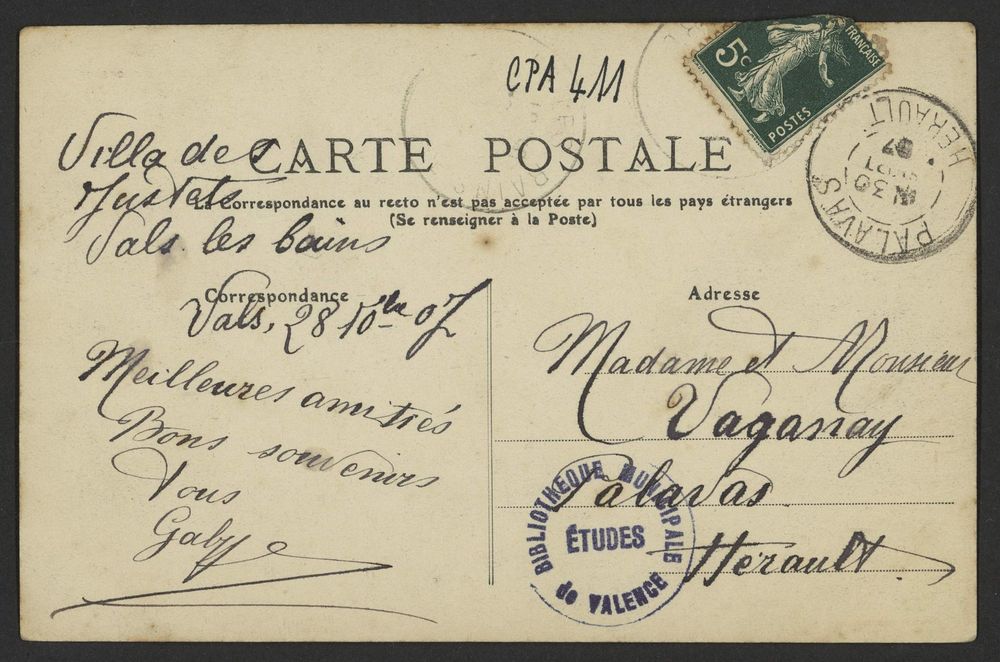 CPA 411
5c
FRANÇAISE
POSTES
PALAVAS
HÉRAULT
30
07
CARTE POSTALE
La Correspondance au recto n'est pas acceptée par tous les pays étrangers
(Se renseigner à la Poste)
Villa des
Justets
Vals les bains
Correspondance
Vals, 28 10bre 07
Meilleures amitiés
Bons souvenirs
Tous
Gaby
Adresse
Madame et Monsieur
Vaganay
Palavas
Hérault
BIBLIOTHEQUE MUNICIPALE
ÉTUDES
de VALENCE